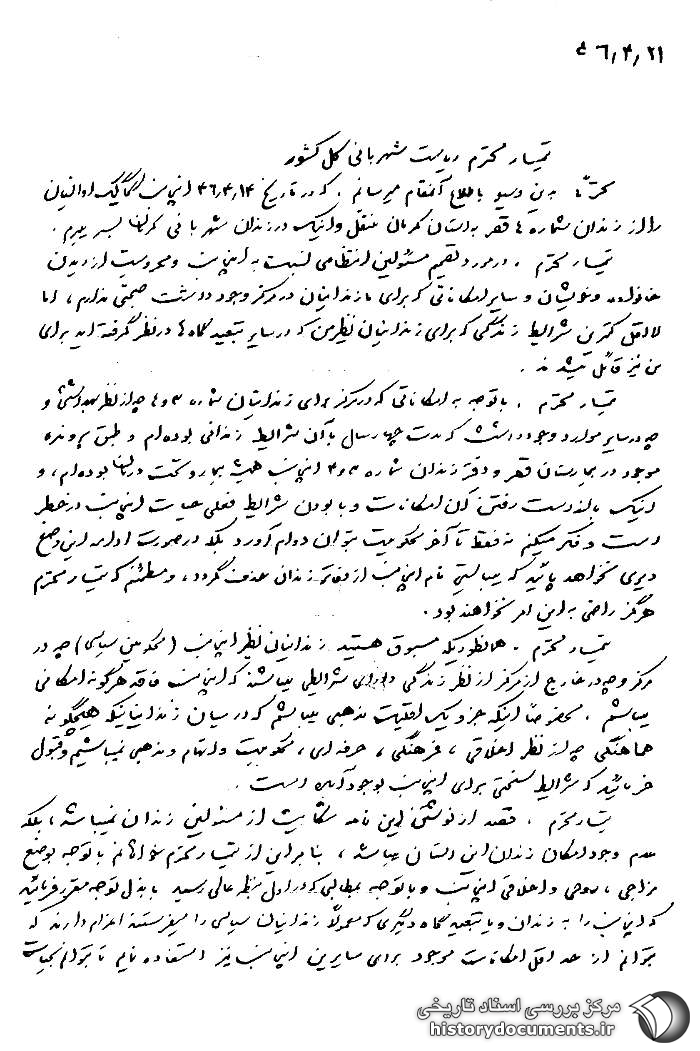 ۴۶/۴/۲۱
تیمسار محترم ریاست شهربانی کل کشور
محترماً بدین وسیله باطلاع آنمقام میرسانم. که در تاریخ ۴۶/۴/۱۴ اینجانب آوانسیان
را از زندان شماره ۴ قصر به استان کرمان منتقل و اینک در زندان شهربانی کرمان بسر میبرم.
تیمسار محترم. در مورد تصمیم مسئولین انتظامی نسبت به اینجانب و محرومیت از دیدن
خانواده و خویشان و سایر امکاناتی که برای ما زندانیان در مرکز وجود داشت صحبتی ندارم، اما
لااقل کمترین شرایط زندگی که برای زندانیان نظیر من که در سایر تبعیدگاه ها در نظر گرفته اید برای
من نیز قائل میشدند.
تیمسار محترم. با توجه به امکاناتی که در مرکز برای زندانیان شماره ۳ و ۴ چه از نظر بهداشتی و
چه در سایر موارد وجود داشت که مدت چهار سال با آن شرایط زندانی بوده ام و طبق پرونده
موجود در بیمارستان قصر و دفتر زندان شماره ۳ و ۴ اینجانب همیشه بیمار و تحت درمان بوده ام، و
اینک با از دست رفتن آن امکانات و با بودن شرایط فعلی حیات اینجانب در خطر
است و فکر میکنم نه فقط تا آخر محکومیت نتوان دوام آورد بلکه در صورت ادامه این وضع
دیری نخواهد پائید که میبایستی نام اینجانب از دفاتر زندان حذف گردد، و مطمئنم که تیمسار محترم
هرگز راضی به این امر نخواهند بود.
تیمسار محترم. همانطوریکه مسبوق هستید زندانیان نظیر اینجانب (محکومین سیاسی) چه در
مرکز و چه در خارج از مرکز از نظر زندگی دارای شرایطی میباشند که اینجانب فاقد هرگونه امکانی
میباشم. مخصوصاً اینکه جزو یک اقلیت مذهبی میباشم که در میان زندانیانیکه هیچگونه
هماهنگی چه از نظر اخلاقی، فرهنگی، حرفه ای، محکومیت و اتهام و مذهبی نمیباشیم و قبول
خواهید فرمائید که شرایط سختی برای اینجانب بوجود آمده است.
تیمسار محترم. قصد از نوشتن این نامه شکایت از مسئولین زندان نمیباشد، بلکه
عدم وجود امکان زندان این استان میباشد، بنابراین از تیمسار محترم خواهانم با توجه بوضع
مزاجی، روحی و اخلاقی اینجانب و با توجه بمطالبی که در اول بنظر عالی رسید با بذل توجه مقرر فرمائید
که اینجانب را به زندان و یا تبعیدگاه دیگری که معمولاً زندانیان سیاسی را میفرستند اعزام دارند که
بتوانم از حداقل امکانات موجود برای سایرین اینجانب نیز استفاده نمایم تا بتوانم بحیات
مرکز بررسی اسناد تاریخی
historydocuments.ir